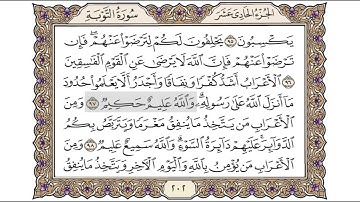 الجزء الحادي عشر
سورة التوبة
يَكْسِبُونَ ﴿٩٥﴾ يَحْلِفُونَ لَكُمْ لِتَرْضَوْا عَنْهُمْ فَإِن
تَرْضَوْا عَنْهُمْ فَإِنَّ اللَّهَ لَا يَرْضَىٰ عَنِ الْقَوْمِ الْفَاسِقِينَ
﴿٩٦﴾ الْأَعْرَابُ أَشَدُّ كُفْرًا وَنِفَاقًا وَأَجْدَرُ أَلَّا يَعْلَمُوا حُدُودَ
مَا أَنزَلَ اللَّهُ عَلَىٰ رَسُولِهِ وَاللَّهُ عَلِيمٌ حَكِيمٌ ﴿٩٧﴾ وَمِنَ
الْأَعْرَابِ مَن يَتَّخِذُ مَا يُنفِقُ مَغْرَمًا وَيَتَرَبَّصُ بِكُمُ
الدَّوَائِرَ عَلَيْهِمْ دَائِرَةُ السَّوْءِ وَاللَّهُ سَمِيعٌ عَلِيمٌ ﴿٩٨﴾ وَمِنَ
الْأَعْرَابِ مَن يُؤْمِنُ بِاللَّهِ وَالْيَوْمِ الْآخِرِ وَيَتَّخِذُ مَا يُنفِقُ
٢٠٢